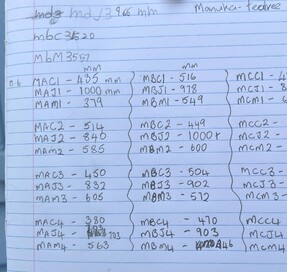 mdJ3 966 mm Manuka-teatree
mbC3 520
MbM3557
mm mm
MAC1 - 435 mm MBC1 - 516 MCC1 - 4
MAJ1 - 1000 mm MBJ1 - 978 MCJ1 - 8
MAM1 - 379 MBM1 - 549 MCM1 - 6
MAC2 - 514 MBC2 - 449 MCC2 -
MAJ2 - 840 MBJ2 - 1000 MCJ2 -
MAM2 - 585 MBM2 - 600 MCM2 -
MAC3 - 450 MBC3 - 504 MCC3 -
MAJ3 - 832 MBJ3 - 902 MCJ3 -
MAM3 - 605 MBM3 - 572 MCM3 -
MAC4 - 380 MBC4 - 470 MCC4
MAJ4 - 703 MBJ4 - 903 MCJ4
MAM4 - 563 MBM4 - 446 MCM4